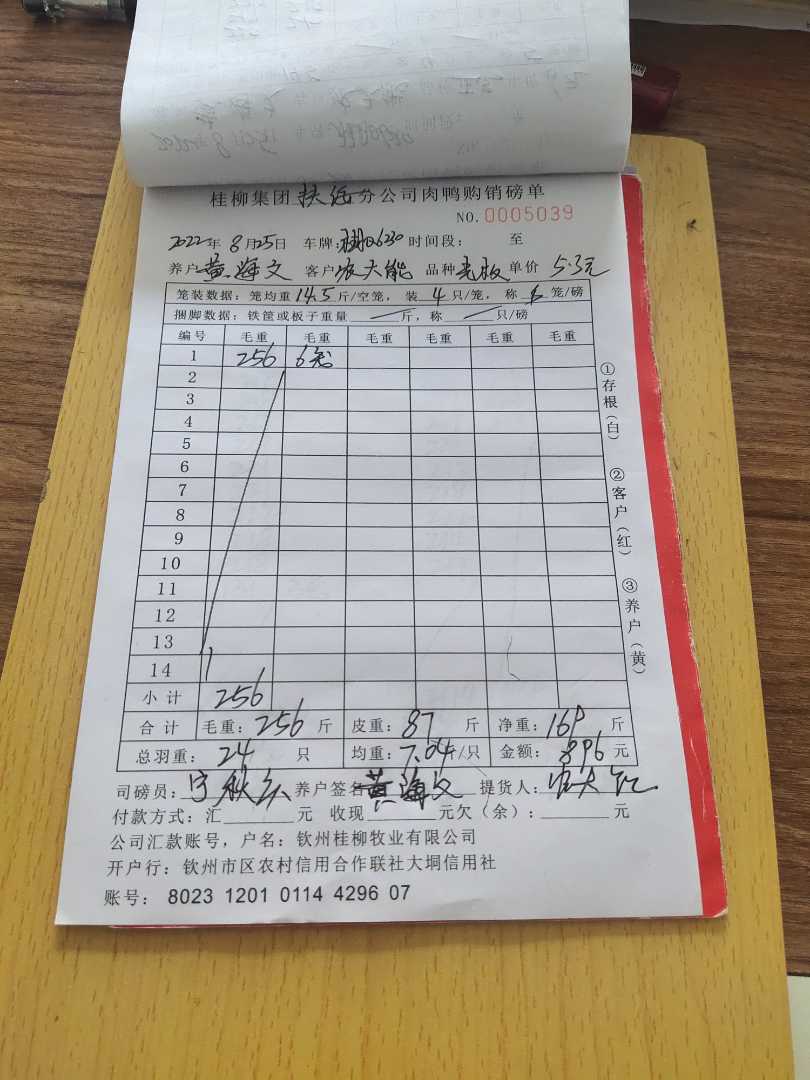 桂柳集团 分公司肉鸭购销磅单
NO.0005039
2022年 8月25日 车牌: 时间段: 至
养户 黄海文 客户 农大能 品种 单价 5.3元
笼装数据: 笼均重 14.5 斤/空笼, 装 4 只/笼, 称 6 笼/磅
捆脚数据: 铁筐或板子重量 斤, 称 只/磅
编号 毛重 毛重 毛重 毛重 毛重 毛重
1 256 6笼
2
3
4
5
6
7
8
9
10
11
12
13
14
小计 256
合计 毛重: 256 斤 皮重: 87 斤 净重: 169 斤
总羽重: 24 只 均重: 7.04斤/只 金额: 896 元
司磅员: 养户签名 黄海文 提货人:
付款方式: 汇 元 收现 元欠(余): 元
公司汇款账号,户名: 钦州桂柳牧业有限公司
开户行: 钦州市区农村信用合作联社大垌信用社
账号: 8023 1201 0114 4296 07
①存根(白)
②客户(红)
③养户(黄)